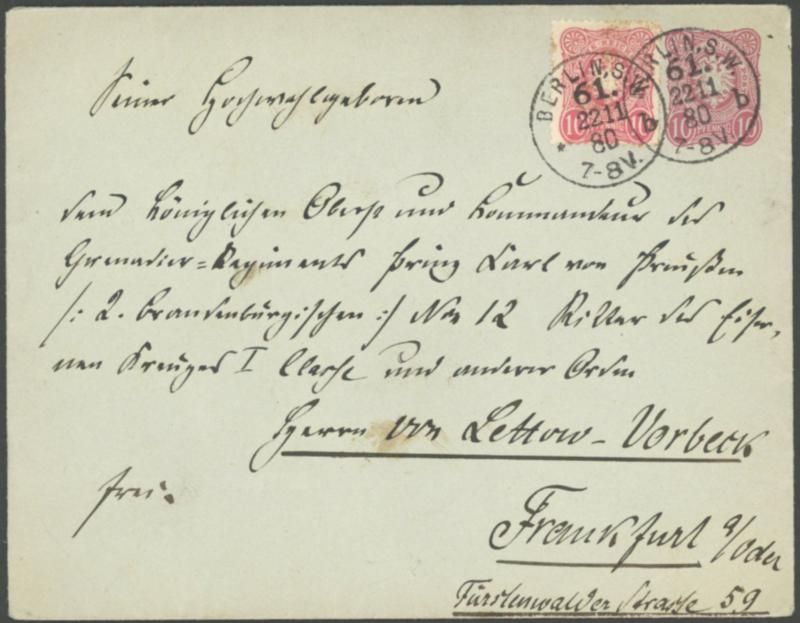 BERLIN, S.W.
61.
22 11
80
b
* 7-8V.
BERLIN, S.W.
61.
22 11
80
b
7-8V.
10 10
10 PFENNIG 10
Seiner Hochwohlgeboren
dem Königlichen Oberst und Kommandeur des
Grenadier=Regiments Prinz Carl von Preußen
/: 2. Brandenburgischen :/ No 12 Ritter des Eiser-
nen Kreuzes I Classe und anderer Orden
Herrn von Lettow-Vorbeck
frei.
Frankfurt a/Oder
Fürstenwalder Strasse 59